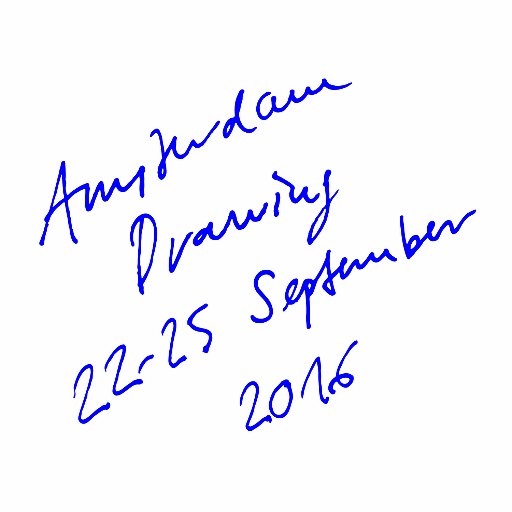 Amsterdam
Drawing
22-25 September
2016